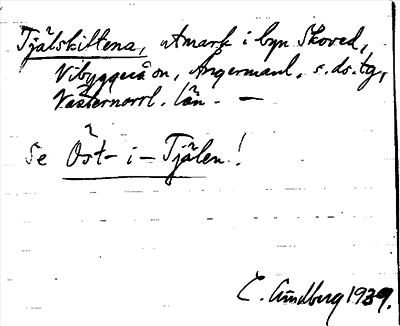 Tjälskiftena, utmark i byn Skoved,
Vibyggerå sn, Ångermanl. s. ds. tg,
Västernorrl. län. —
Se Öst-i-Tjälen!
E. Lundberg 1939.